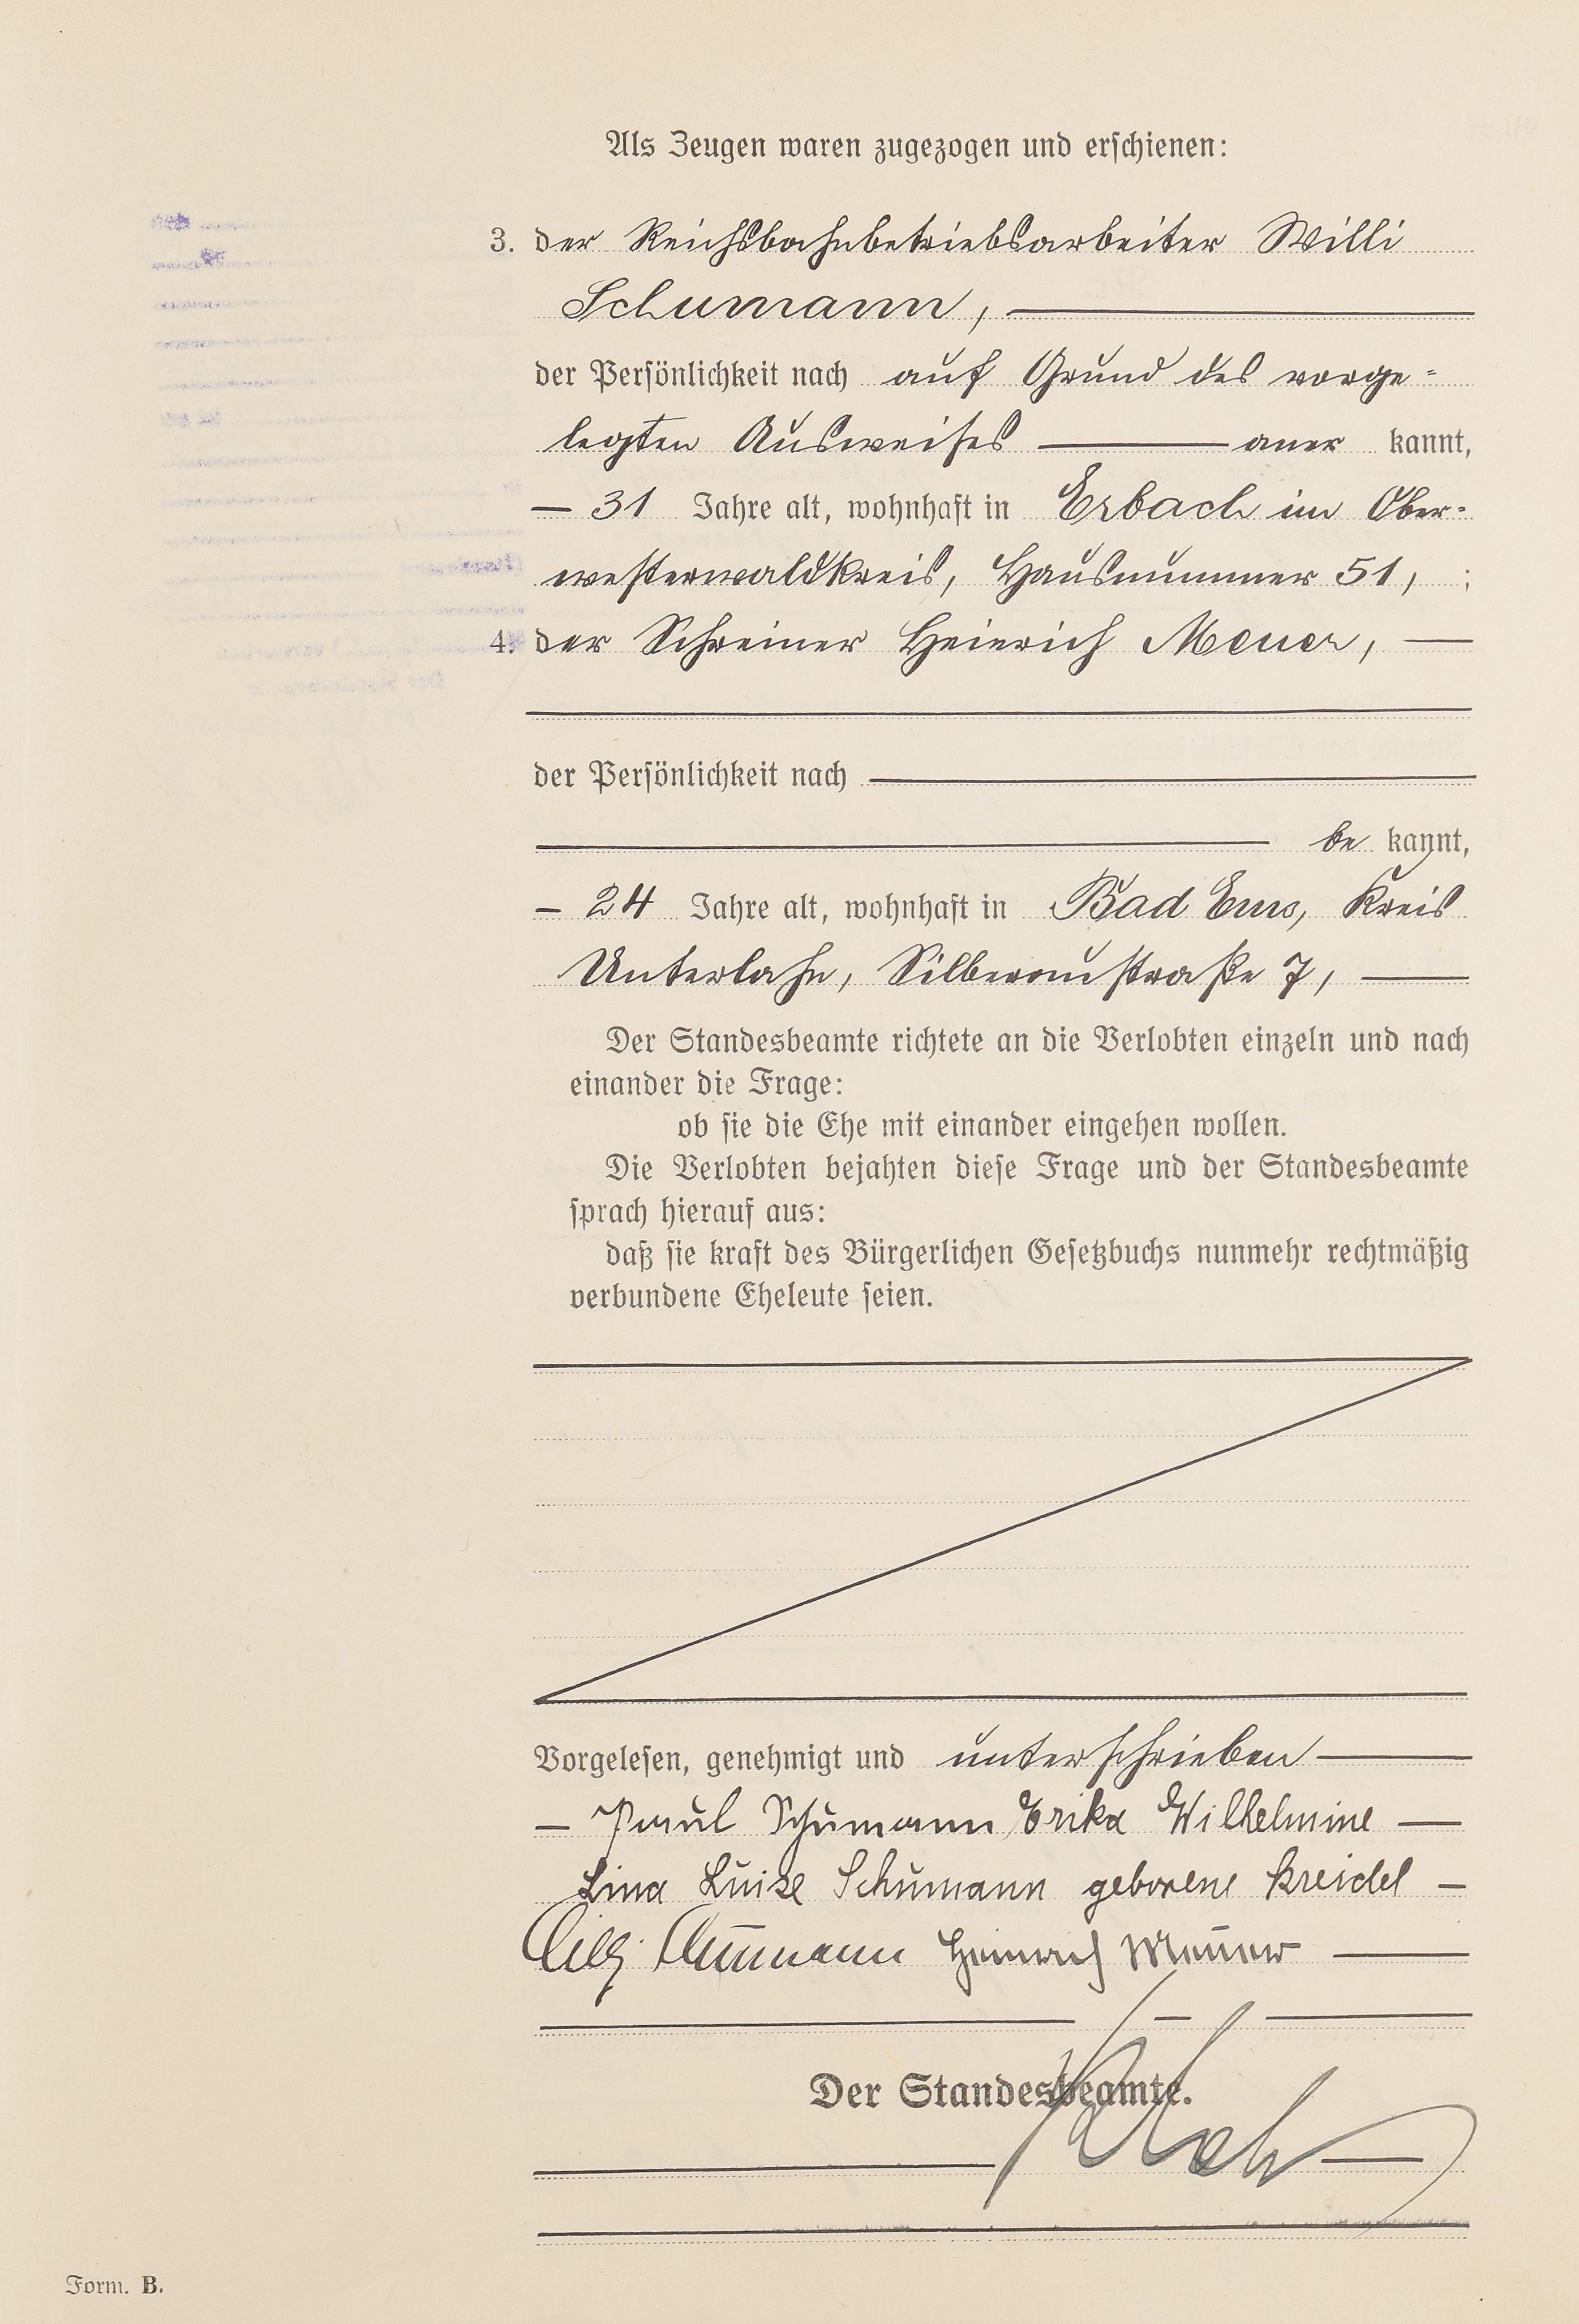 Als Zeugen waren zugezogen und erschienen:
3. der Reichsbahnbetriebsarbeiter Willi
Schumann, —
der Persönlichkeit nach auf Grund des vorge-
legten Ausweises — aner kannt,
— 31 Jahre alt, wohnhaft in Erbach im Ober-
westerwaldkreis, Hausnummer 51, ;
4. der Schreiner Heinrich Meuer, —
der Persönlichkeit nach —
— be kannt,
— 24 Jahre alt, wohnhaft in Bad Ems, Kreis
Unterlahn, Silberaustraße 7, —
Der Standesbeamte richtete an die Verlobten einzeln und nach
einander die Frage:
ob sie die Ehe mit einander eingehen wollen.
Die Verlobten bejahten diese Frage und der Standesbeamte
sprach hierauf aus:
daß sie kraft des Bürgerlichen Gesetzbuchs nunmehr rechtmäßig
verbundene Eheleute seien.
Vorgelesen, genehmigt und unterschrieben —
— Paul Schumann Erika Wilhelmine —
Lina Luise Schumann geborene Kreidel —
Willi Schumann Heinrich Meuer —
Der Standesbeamte.
Form. B.